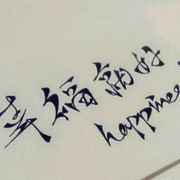 幸福好
happines